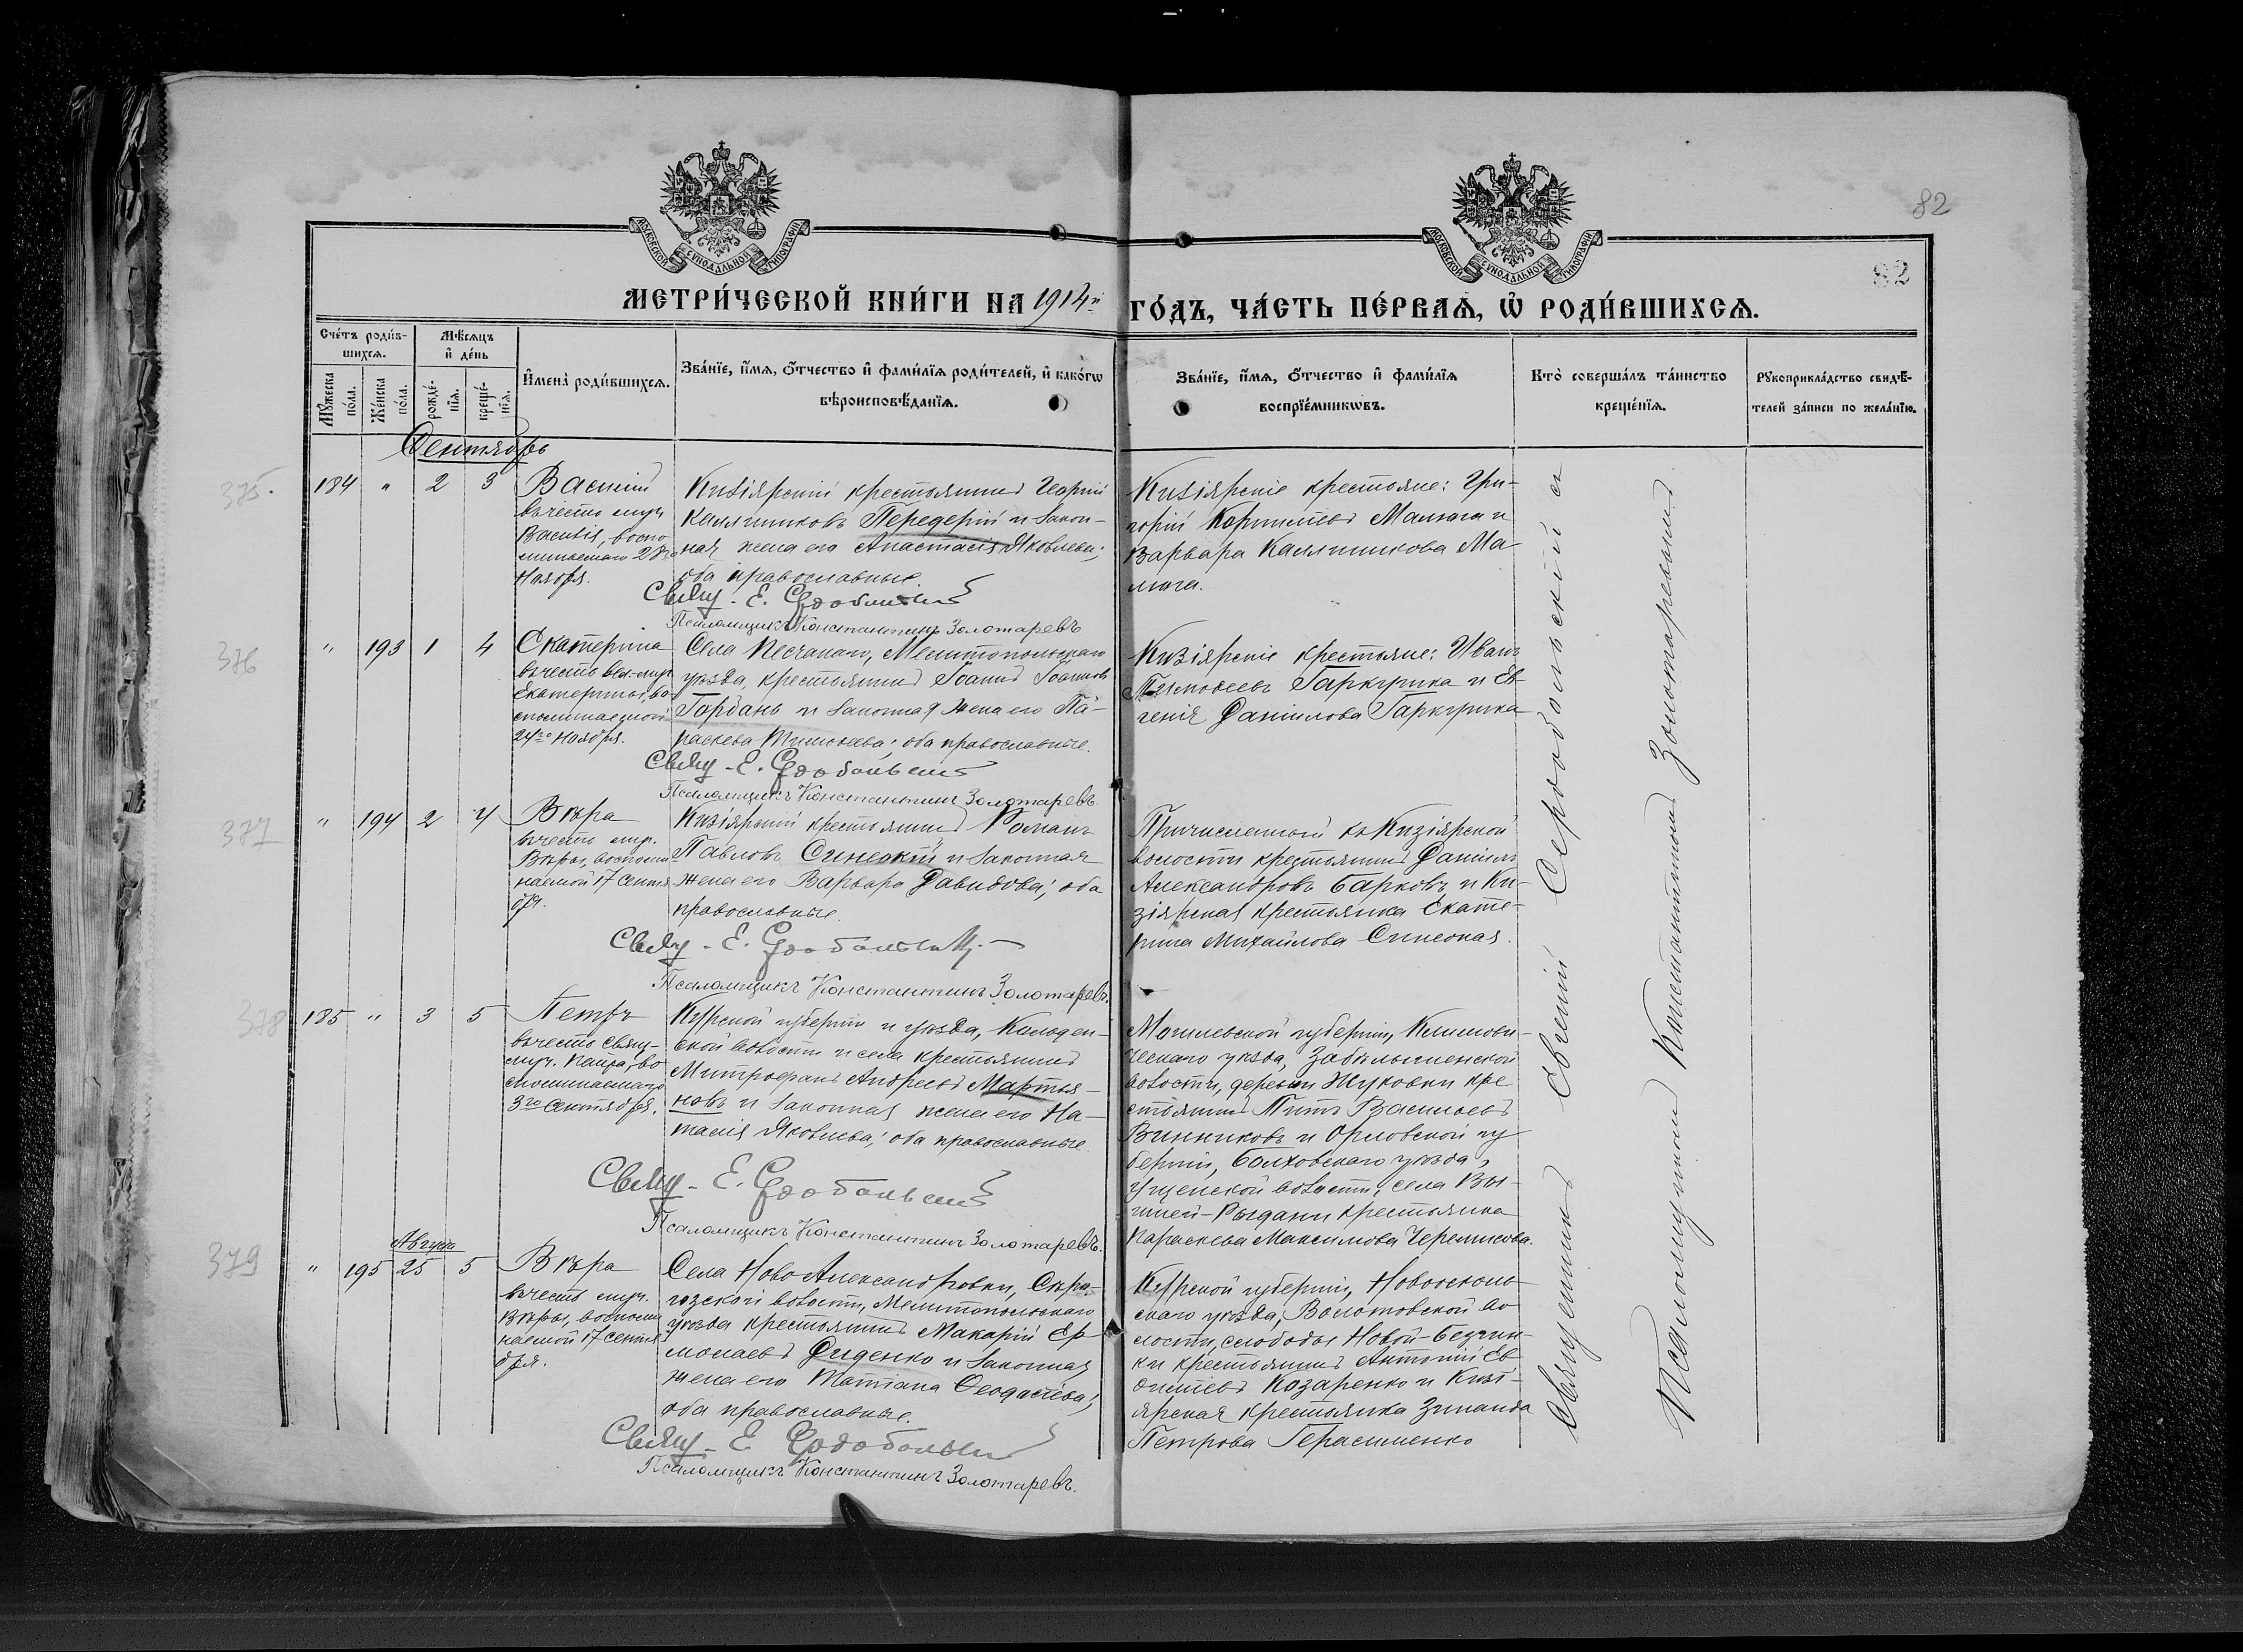 82
82
МОСКОВСКОЙ СУНОДАЛЬНОЙ ТИПОГРАФІИ
МОСКОВСКОЙ СУНОДАЛЬНОЙ ТИПОГРАФІИ
МЕТРИ́ЧЕСКОЙ КНИ́ГИ НА 1914й ГО́ДЪ, ЧА́СТЬ ПЕ́РВАѦ, Ѡ҆ РОДИ́ВШИХСѦ.
Сче́тъ роди́в-
шихсѧ.
Мѣ́сѧцъ
и҆ де́нь
И҆мена̀ роди́вшихсѧ.
Зва́нїе, и҆́мѧ, о҆́тчество и҆ фами́лїѧ роди́телей, и҆ како́гѡ
вѣроисповѣ́данїѧ.
Зва́нїе, и҆́мѧ, о҆́тчество и҆ фами́лїѧ
воспрїе́мникѡвъ.
Кто̀ соверша́лъ та́инство
креще́нїѧ.
Рꙋкоприкла́дство свидѣ́-
телей за́писи по жела́нїю.
Мꙋ́жеска
по́ла.
Же́нска
по́ла.
рожде́-
нїѧ.
креще́-
нїѧ.
Сентябрь
375.
184 " 2 3
Василій
въ честь муч.
Василія, воспо-
минаемаго 28го
Ноября.
Кизіярскій крестьянинъ Георгій
Каллиниковъ Передерій и закон-
ная жена его Анастасія Яковлева;
оба православные.
Свящ. Е. Сердобольскій
Псаломщикъ Константинъ Золотаревъ
Кизіярскіе крестьяне: Гри-
горій Корниліевъ Малюга и
Варвара Каллиникова Ма-
люга.
376
" 193 1 4
Екатерина
въ честь вел.-муч.
Екатерины, во-
споминаемой
24го Ноября.
Села Песчанаго, Мелитопольскаго
уѣзда, крестьянинъ Іоаннъ Іоанновъ
Горданъ и законная жена его Па-
раскева Тимоѳеева; оба православные.
Свящ. Е. Сердобольскій
Псаломщикъ Константинъ Золотаревъ.
Кизіярскіе крестьяне: Иванъ
Тимоѳеевъ Гаркуика и Ев-
генія Даніилова Гаркуика
377
" 194 2 4
Вѣра
въ честь муч.
Вѣры, воспоми-
наемой 17 Сентя-
бря.
Кизіярскій крестьянинъ Романъ
Павловъ Синеокій и законная
жена его Варвара Давидова; оба
православные.
Свящ. Е. Сердобольскій
Псаломщикъ Константинъ Золотаревъ.
Причисленный къ Кизіярской
волости крестьянинъ Даніилъ
Александровъ Барковъ и Ки-
зіярская крестьянка Екате-
рина Михайлова Синеокая.
378
185 " 3 5
Петръ
въ честь свящ.-
муч. Петра, во-
споминаемаго
3го Сентября.
Курской губерніи и уѣзда, Колоден-
ской волости и села крестьянинъ
Митрофанъ Андреевъ Мартья-
новъ и законная жена его На-
талія Яковлева; оба православные
Свящ. Е. Сердобольскій
Псаломщикъ Константинъ Золотаревъ.
Могилевской губерніи, Климови-
ческаго уѣзда, Забѣлышенской
волости, деревни Жуковки кре-
стьянинъ Титъ Васильевъ
Винниковъ и Орловской гу-
берніи, Болховскаго уѣзда,
волости, села Вы-
крестьянка
Параскева Максимова Черемисова.
379
Августъ
" 195 25 5
Вѣра
въ честь муч.
Вѣры, воспоми-
наемой 17 Сентя-
бря.
Села НовоАлександровки, Сѣро-
гозской волости, Мелитопольскаго
уѣзда крестьянинъ Макарій Ер-
молаевъ Диденко и законная
жена его Татіана Ѳеодосіева;
оба православные.
Свящ. Е. Сердобольскій
Псаломщикъ Константинъ Золотаревъ.
Курской губерніи, Новоосколь-
скаго уѣзда, Волотовской во-
лости, слободы Новой-Безгин-
ки крестьянинъ Антоній Ев-
Козаренко и Кизі-
ярская крестьянка Зинаида
Петрова Герасименко
Священникъ Евгеній Сердобольскій и
Псаломщикъ Константинъ Золотаревъ